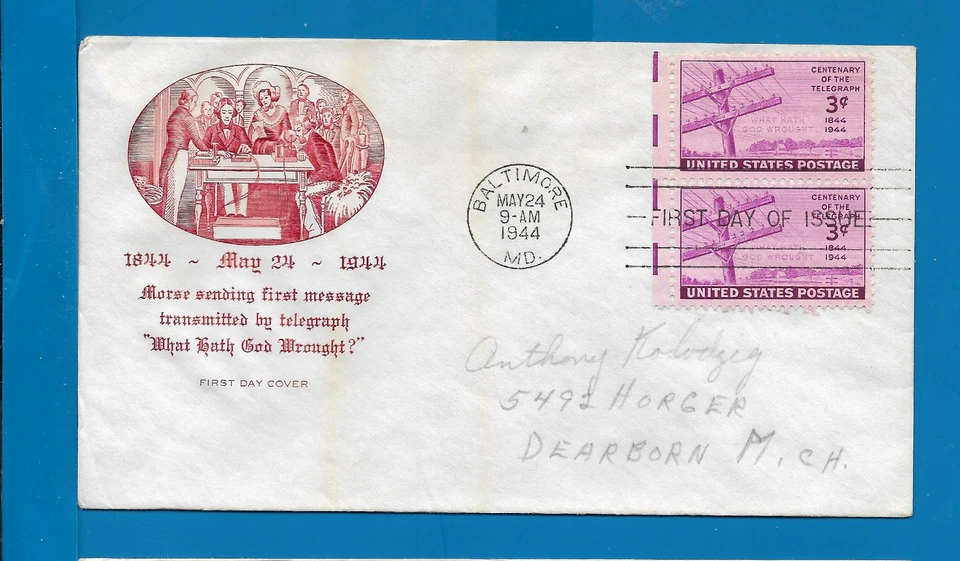 1844 ~ May 24 ~ 1944
Morse sending first message
transmitted by telegraph
"What Hath God Wrought?"
FIRST DAY COVER
BALTIMORE
MAY 24
9-AM
1944
MD.
CENTENARY
OF THE
TELEGRAPH
3¢
WHAT HATH
GOD WROUGHT
1844
1944
UNITED STATES POSTAGE
FIRST DAY OF ISSUE
CENTENARY
OF THE
TELEGRAPH
3¢
WHAT HATH
GOD WROUGHT
1844
1944
UNITED STATES POSTAGE
Anthony
5492 HORGER
DEARBORN MICH.